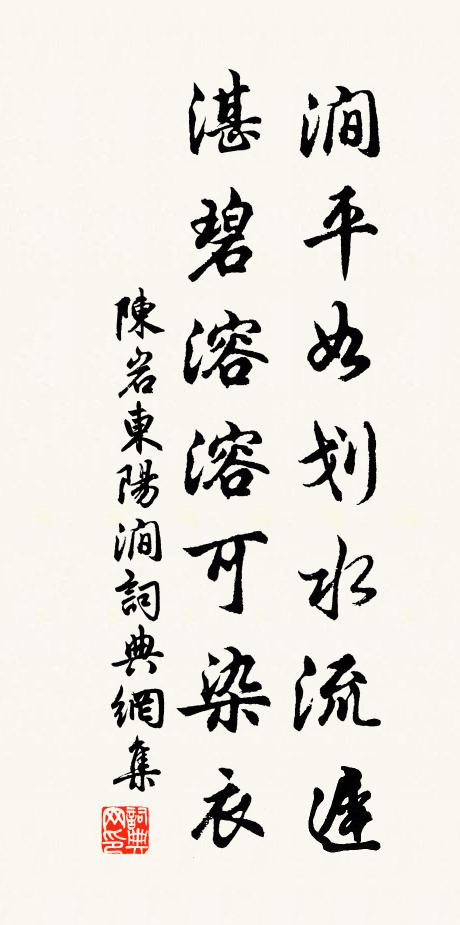 澗平如划水流遲
湛碧溶溶可染衣
陳岩東陽澗詞典網集
詞典网印